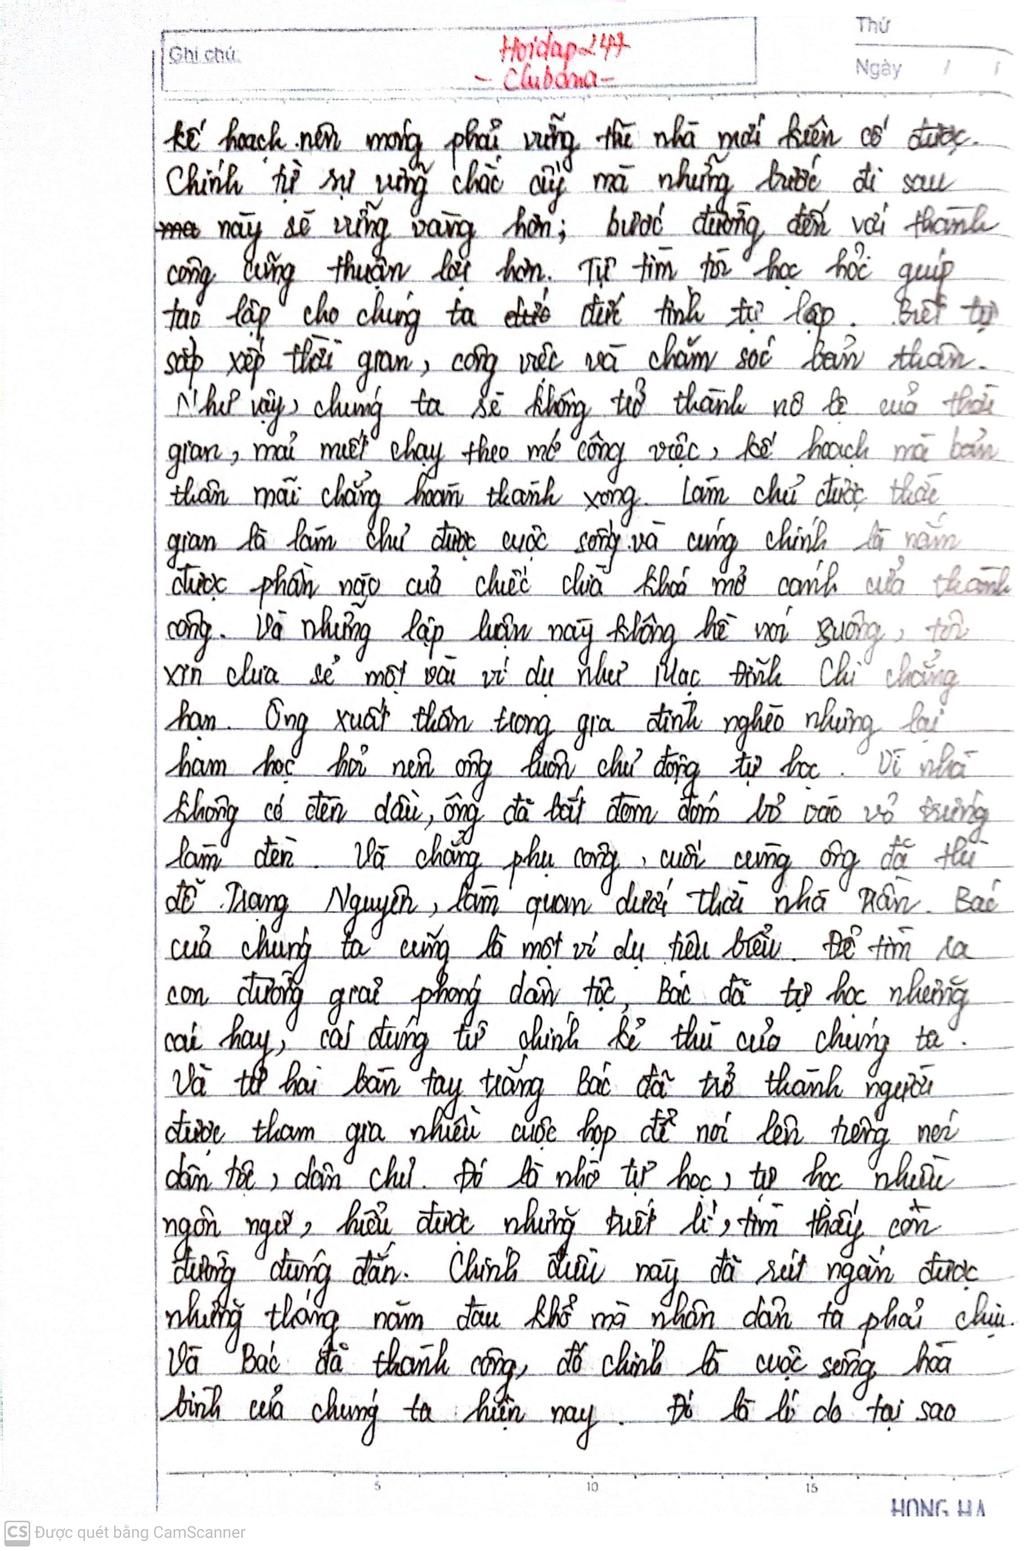 Ghi chú:
Hoidap247
- Clubona -
Thứ
Ngày / /
kế hoạch nền móng phải vững thì nhà mới kiên cố được.
Chính từ sự vững chắc ấy mà những bước đi sau
này sẽ vững vàng hơn; bước đường đến với thành
công cũng thuận lợi hơn. Tự tìm tòi học hỏi giúp
tạo lập cho chúng ta đức tính tự lập. Biết tự
sắp xếp thời gian, công việc và chăm sóc bản thân.
Như vậy, chúng ta sẽ không trở thành nô lệ của thời
gian, mải miết chạy theo mớ công việc, kế hoạch mà bản
thân mãi chẳng hoàn thành xong. Làm chủ được thời
gian là làm chủ được cuộc sống và cũng chính là nắm
được phần nào của chiếc chìa khoá mở cánh cửa thành
công. Và những lập luận này không hề nói suông, tôi
xin chia sẻ một vài ví dụ như Mạc Đĩnh Chi chẳng
hạn. Ông xuất thân trong gia đình nghèo nhưng lại
ham học hỏi nên ông luôn chủ động tự học. Vì nhà
không có đèn dầu, ông đã bắt đom đóm bỏ vào vỏ trứng
làm đèn. Và chẳng phụ công, cuối cùng ông đã thi
đỗ Trạng Nguyên, làm quan dưới thời nhà Trần. Bác
của chúng ta cũng là một ví dụ tiêu biểu. Để tìm ra
con đường giải phóng dân tộc, Bác đã tự học những
cái hay, cái đúng từ chính kẻ thù của chúng ta.
Và từ hai bàn tay trắng Bác đã trở thành người
được tham gia nhiều cuộc họp để nói lên tiếng nói
dân tộc, dân chủ. Đó là nhờ tự học, tự học nhiều
ngôn ngữ, hiểu được những triết lí, tìm thấy con
đường đúng đắn. Chính điều này đã rút ngắn được
những tháng năm đau khổ mà nhân dân ta phải chịu.
Và Bác đã thành công, đó chính là cuộc sống hòa
bình của chúng ta hiện nay. Đó là lí do tại sao
5 10 15
HONG HA
CS Được quét bằng CamScanner